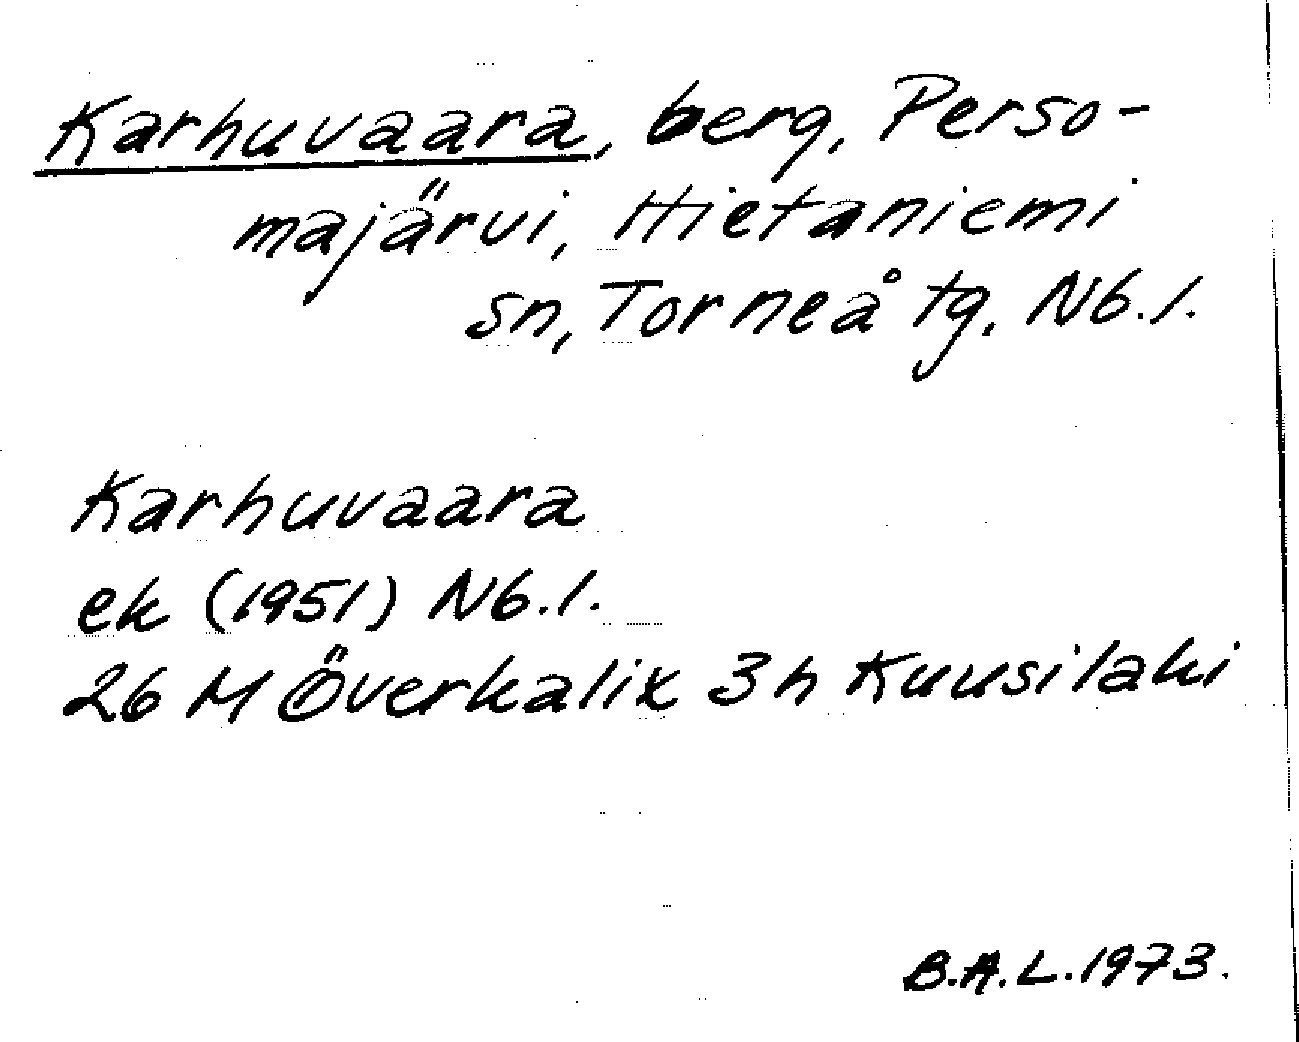 Karhuvaara, berg, Perso-
majärvi, Hietaniemi
sn, Torneå tg, Nb.l.
Karhuvaara
ek (1951) Nb.l.
26 M Överkalix 3h Kuusilaki
B.A.L. 1973.